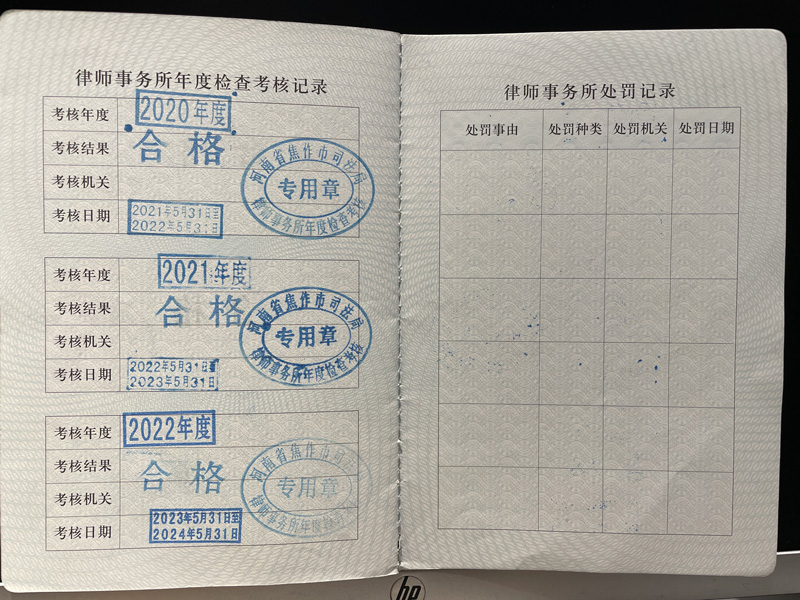 律师事务所年度检查考核记录
考核年度 2020年度
考核结果 合格
考核机关
考核日期 2021年5月31日至
2022年5月31日
河南省焦作市司法局
专用章
律师事务所年度检查考核
考核年度 2021年度
考核结果 合格
考核机关
考核日期 2022年5月31日至
2023年5月31日
河南省焦作市司法局
专用章
律师事务所年度检查考核
考核年度 2022年度
考核结果 合格
考核机关
考核日期 2023年5月31日至
2024年5月31日
河南省焦作市司法局
专用章
律师事务所年度检查考核
律师事务所处罚记录
处罚事由 处罚种类 处罚机关 处罚日期
hp